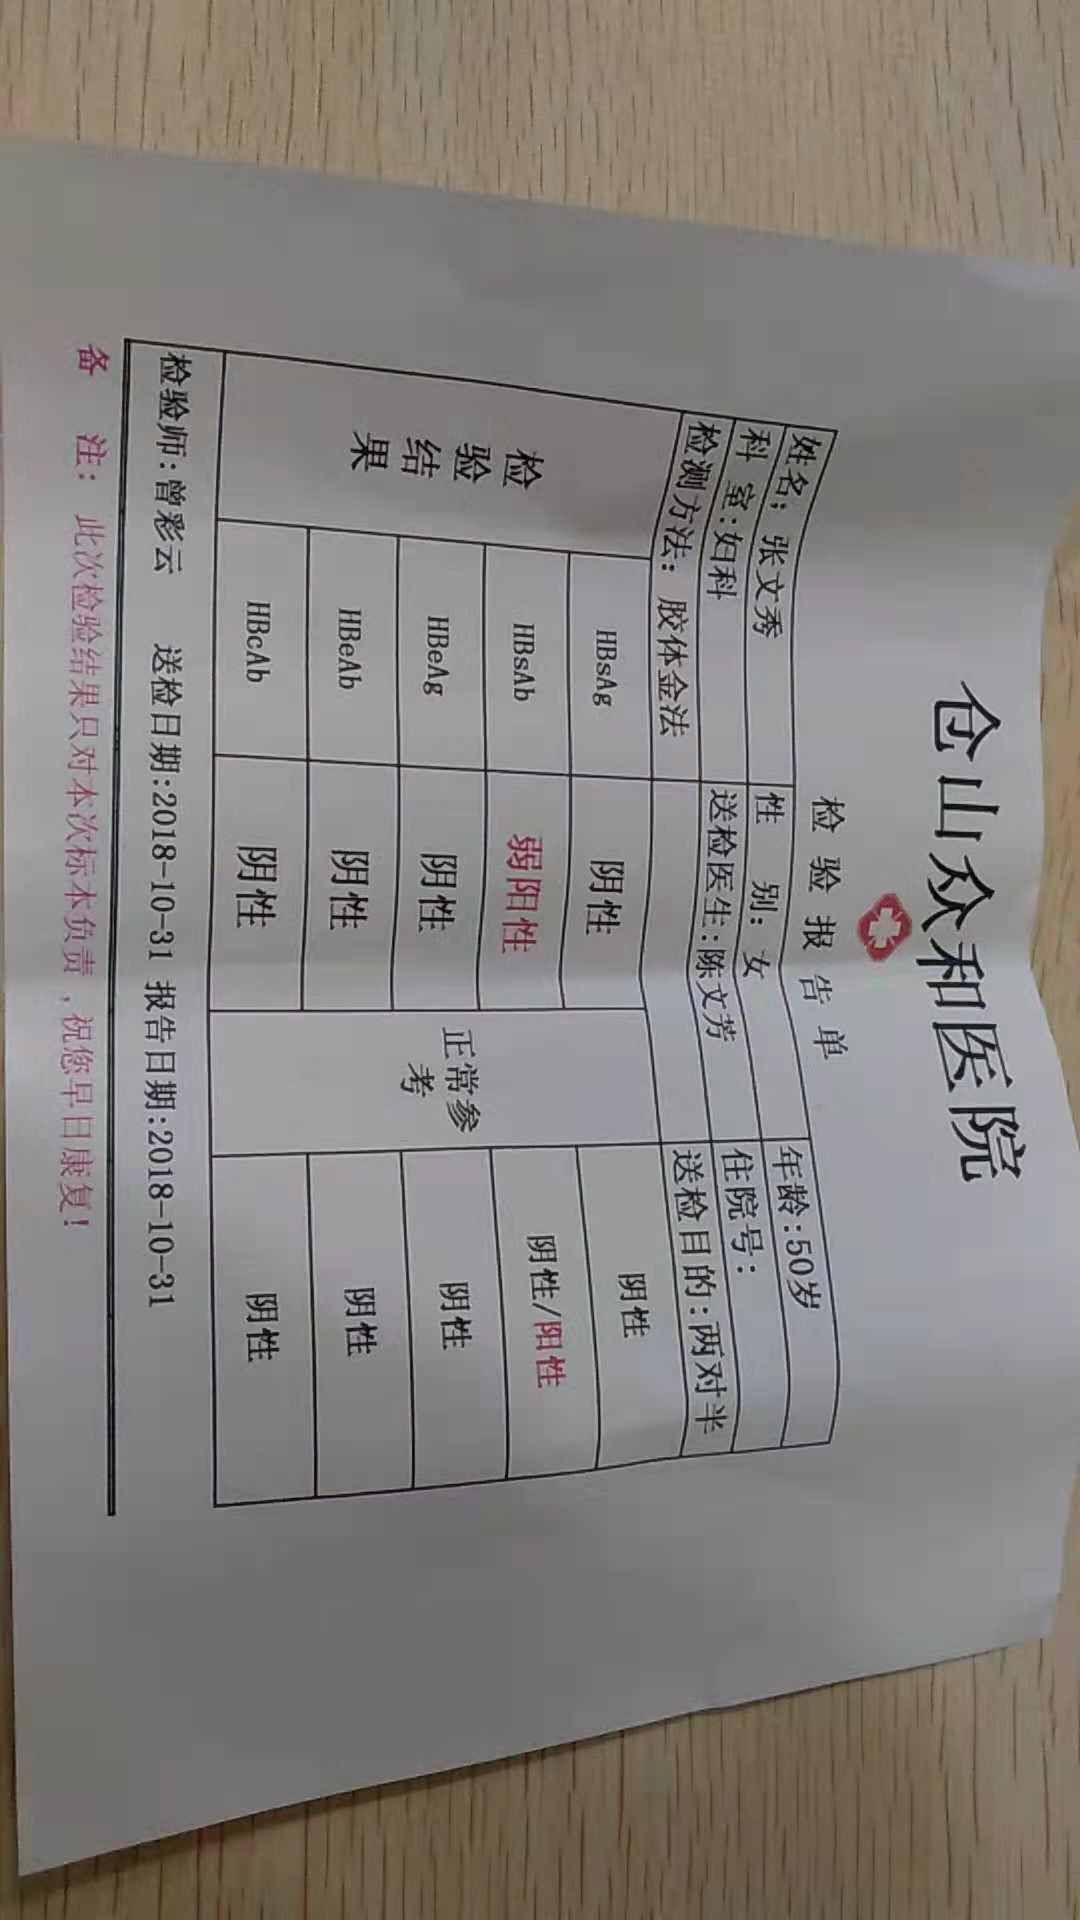 仓山众和医院
检验报告单
姓名：张文秀 性 别：女 年龄:50岁
科 室:妇科 送检医生:陈文芳 住院号:
检测方法：胶体金法 送检目的:两对半
检验结果
正常参考
HBsAg 阴性 阴性
HBsAb 弱阳性 阴性/阳性
HBeAg 阴性 阴性
HBeAb 阴性 阴性
HBcAb 阴性 阴性
检验师:曾彩云 送检日期:2018-10-31 报告日期:2018-10-31
备 注: 此次检验结果只对本次标本负责,祝您早日康复!